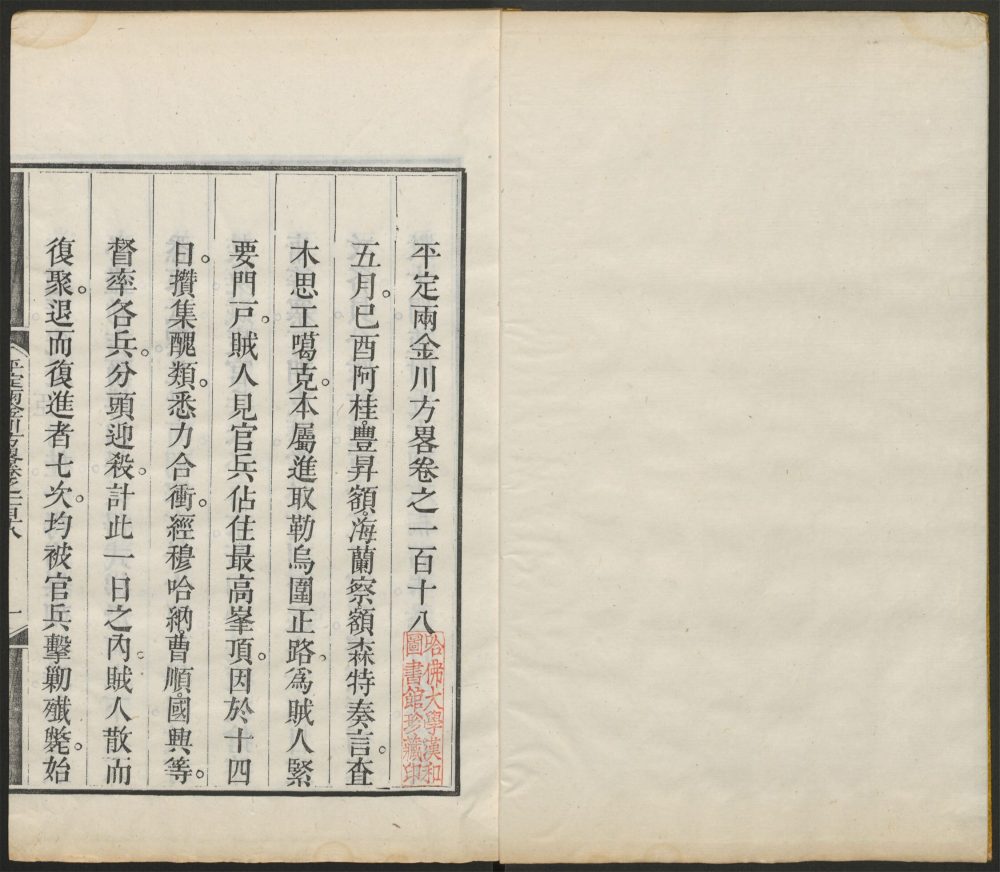 平定兩金川方畧卷之一百十八
五月。己酉阿桂。豐昇額。海蘭察。額森特奏言。查
木思工噶克。本屬進取勒烏圍正路。為賊人緊
要門戶。賊人見官兵佔住最高峯頂。因於十四
日。攢集醜類。悉力合衝。經穆哈納。曹順。國興等。
督率各兵。分頭迎殺。計此一日之內。賊人散而
復聚。退而復進者七次。均被官兵擊勦殲斃。始
平定兩金川方畧卷之一百十八
一
哈佛大學漢和
圖書館珍藏印